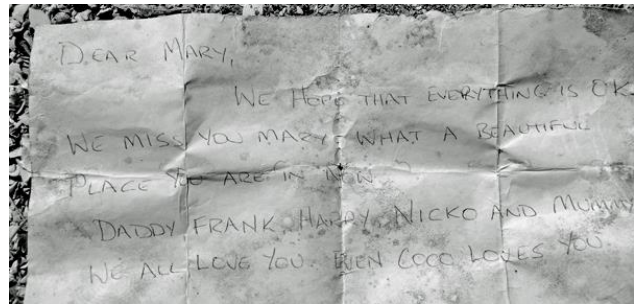 DEAR MARY,
WE HOPE THAT EVERYTHING IS OK
WE MISS YOU MARY. WHAT A BEAUTIFUL
PLACE YOU ARE IN NOW.
DADDY FRANK HARRY NICKO AND MUMMY
WE ALL LOVE YOU. EVEN COCO LOVES YOU